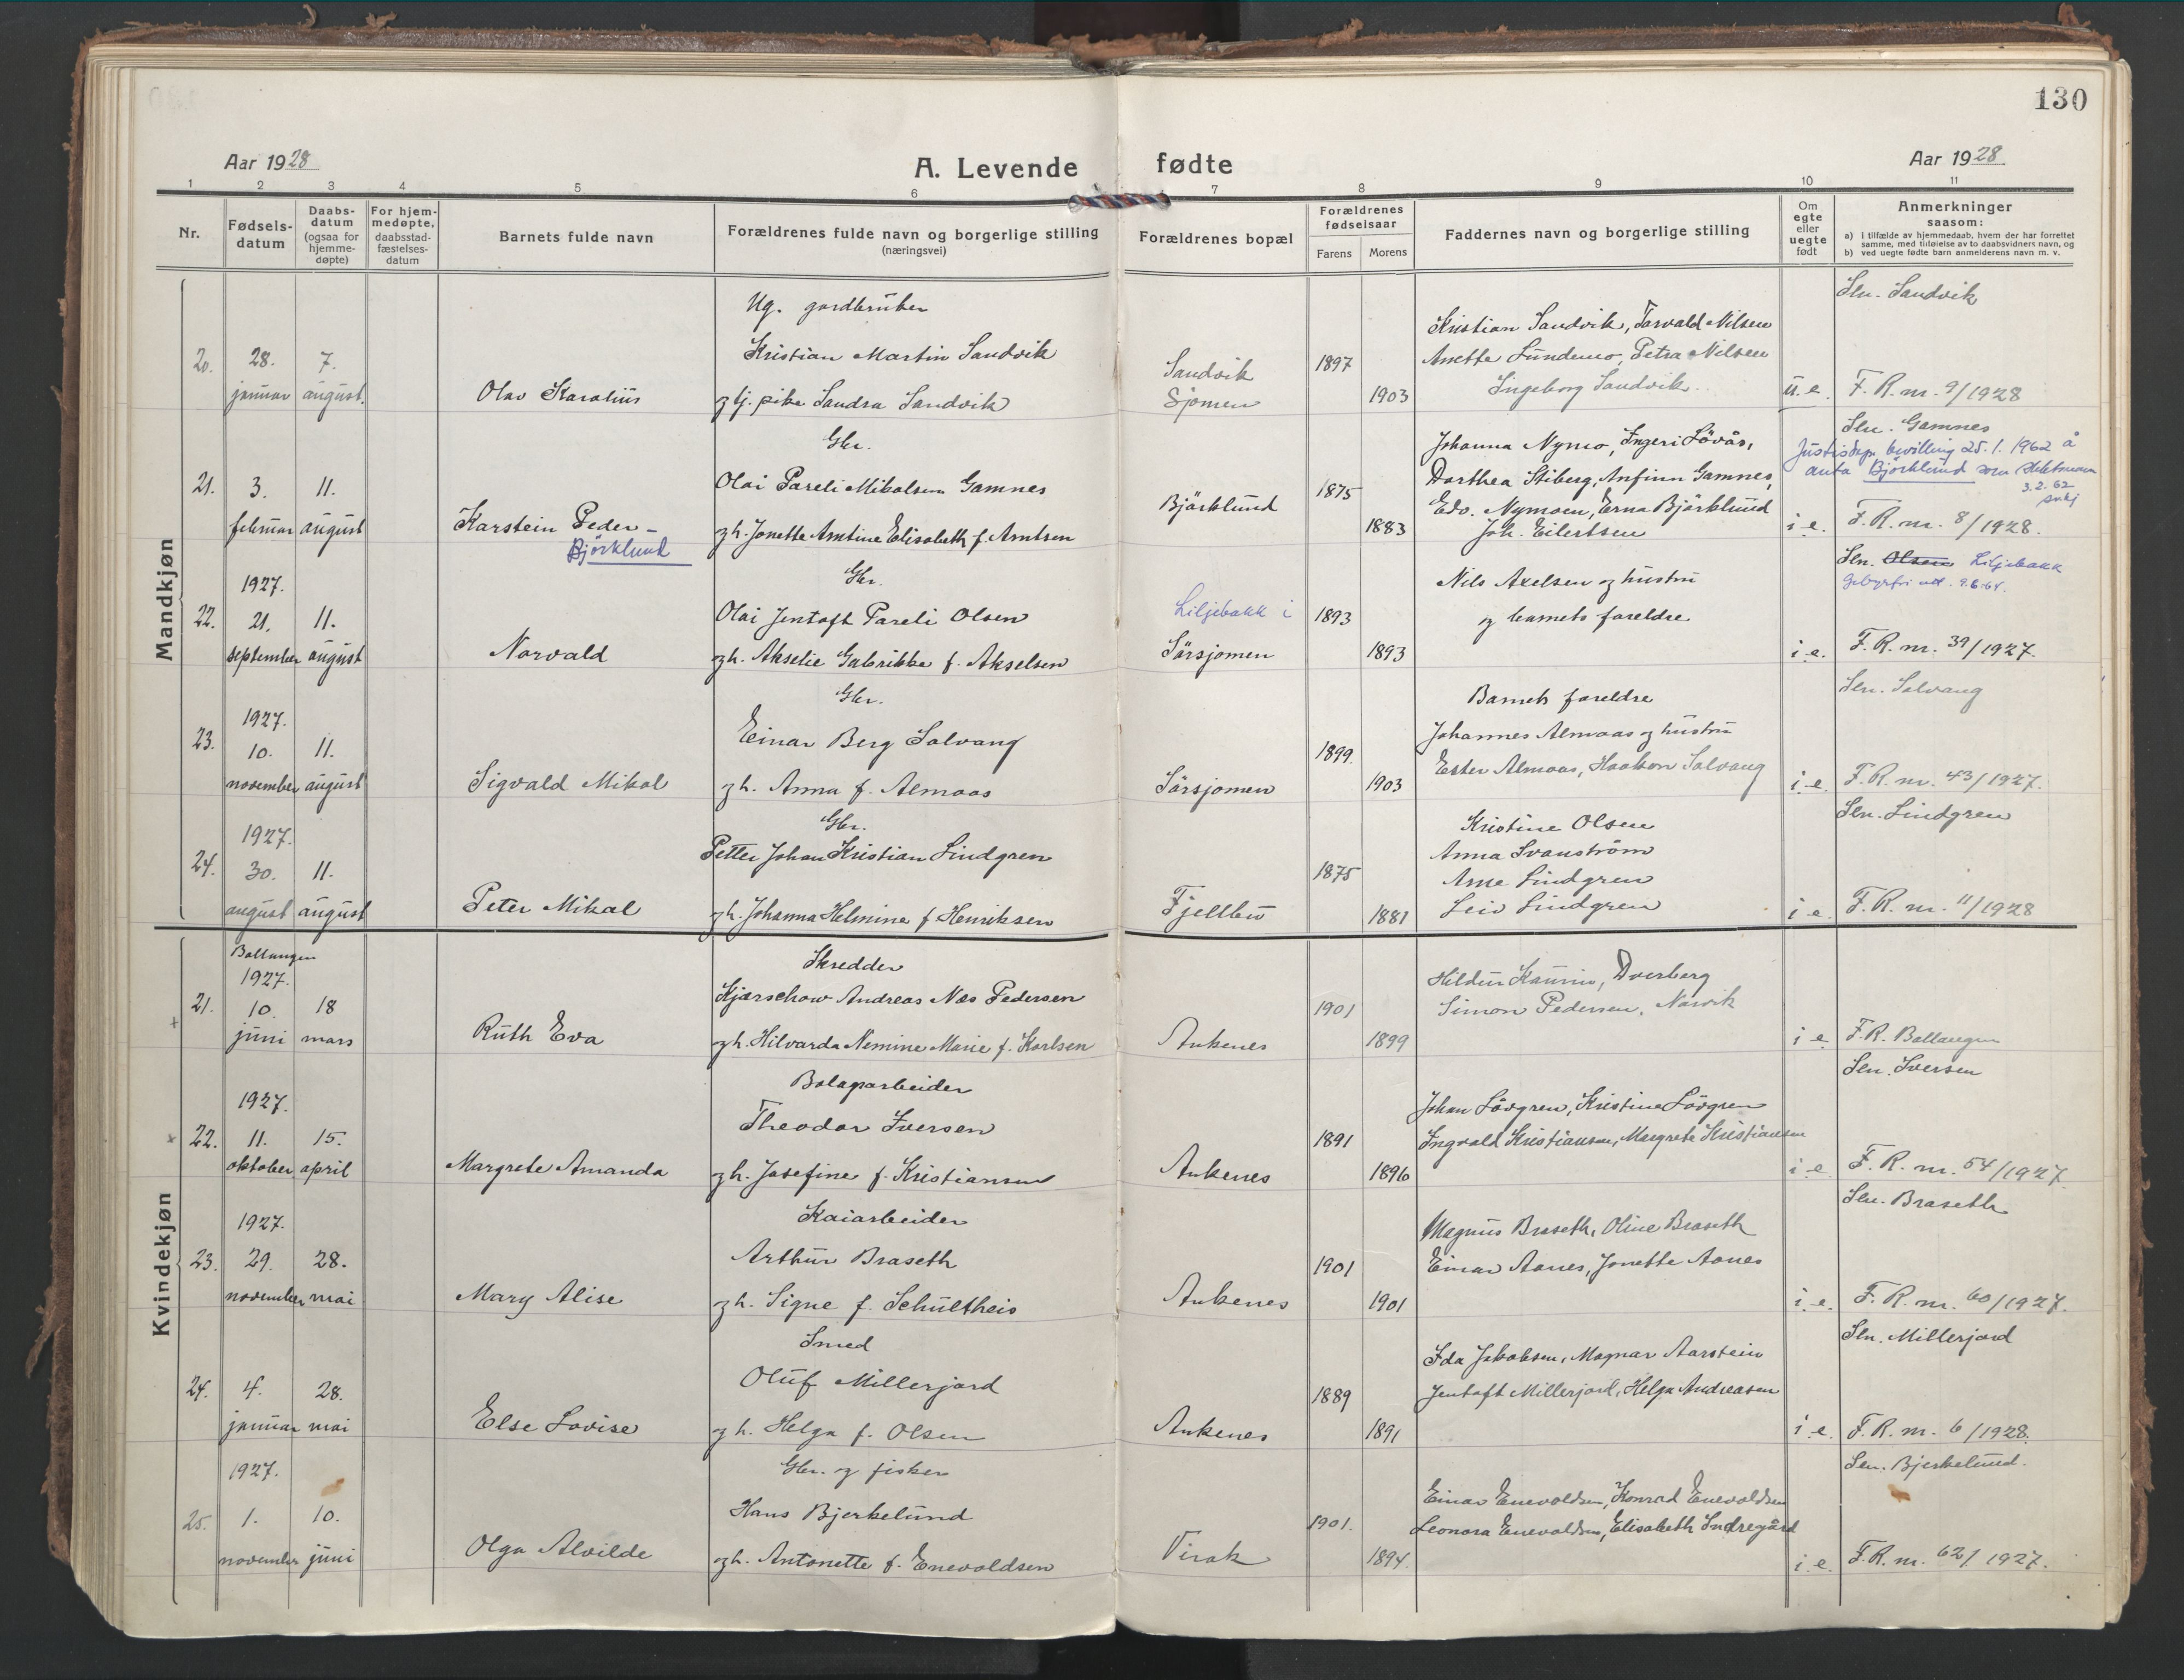 130
Aar 1928
A. Levende fødte
Aar 1928
1 2 3 4 5 6 7 8 9 10 11
Nr.
Fødsels-
datum
Daabs-
datum
(ogsaa for
hjemme-
døpte)
For hjem-
medøpte,
daabsstad-
fæstelses-
datum
Barnets fulde navn
Forældrenes fulde navn og borgerlige stilling
(næringsvei)
Forældrenes bopæl
Forældrenes
fødselsaar
Farens Morens
Faddernes navn og borgerlige stilling
Om
egte
eller
uegte
født
Anmerkninger
saasom:
a) i tilfælde av hjemmedaab, hvem der har forrettet
samme, med tilføielse av to daabsvidners navn, og
b) ved uegte fødte barn anmelderens navn m. v.
Mandkjøn
20.
28.
januar
7.
august.
Olav Karolius
Ug. gardbruker
Kristian Martin Sandvik
og tj. pike Sandra Sandvik
Sandvik
Sjomen
1897
1903
Kristian Sandvik, Torvald Nilsen
Anette Lundemo, Petra Nilsen
Ingeborg Sandvik.
u. e.
Sln. Sandvik
F. R. nr. 9/1928
21.
3.
februar
11.
august
Karstein Peder -
Björklund
Gbr.
Olai Pareli Mikalsen Gamnes
og h. Jonette Arntine Elisabeth f. Arntsen
Björklund
1875
1883
Johanna Nymo, Ingeri Lövås,
Dorthea Stiberg, Anfinn Gamnes,
Edv. Nymoen, Erna Björklund
Joh. Eilertsen
i e.
Sln. Gamnes
Justisdep. bevilling 25.1.1962 å
anta Björklund som slektsnavn
3.2.62
F. R. nr. 8/1928.
22.
1927.
21.
september
11.
august
Norvald
Gbr.
Olai Jentoft Pareli Olsen
og h. Akselie Gabrikke f. Akselsen
Liljebakk i
Sörsjomen
1893
1893
Nils Axelsen og hustru
og barnets foreldre
i e.
Sln. Olsen Liljebakk
9.6.64.
F. R. nr. 39/1927.
23.
1927.
10.
november
11.
august
Sigvald Mikal
Gbr.
Einar Berg Solvang
og h. Anna f. Almaas
Sörsjomen
1899.
1903
Barnets foreldre
Johannes Almaas og hustru
Ester Almaas, Haakon Solvang
i. e.
Sln. Solvang
F. R. nr. 43/1927.
24.
1927.
30.
august
11.
august
Peter Mikal
Gbr.
Petter Johan Kristian Lindgren
og h. Johanna Helmine f. Henriksen
Fjellbu
1875
1881
Kristine Olsen
Anna Svanström
Arne Lindgren
Leiv Lindgren
i e.
Sln. Lindgren
F. R. nr. 11/1928
Kvindekjøn
21.
Ballangen
1927.
10.
juni
18
mars
Ruth Eva
Skredder
Kjærschow Andreas Næs Pedersen
og h. Hilvarda Nemine Marie f. Karlsen
Ankenes
1901
1899
Simon Pedersen, Narvik
i e
F. R. Ballangen
22.
1927.
11.
oktober
15.
april
Margrete Amanda
Bolagsarbeider
Theodor Iversen
og h. Josefine f. Kristiansen
Ankenes
1891
1896
Johan Lövgren, Kristine Lövgren
Ingvald Kristiansen, Margrete Kristiansen
i e
Sln. Iversen
F. R. nr. 54/1927.
23.
1927.
29.
november
28.
mai
Mary Alise
Kaiarbeider
Arthur Braseth
og h. Signe f. Schultheis
Ankenes
1901
1901
Magnus Braseth, Oline Braseth
Einar Aanes, Jonette Aanes
i. e.
Sln. Braseth
F. R. nr. 60/1927.
24.
4.
januar
28.
mai
Else Lovise
Smed
Oluf Millerjord
og h. Helga f. Olsen
Ankenes
1889
1891
Ida Jakobsen, Magnar Aarstein
Jentoft Millerjord, Helga Andreasen
i e.
Sln. Millerjord
F. R. nr. 6/1928.
25.
1927.
1.
november
10.
juni
Olga Alvilde
Gbr. og fisker
Hans Bjerkelund
og h. Antonette f. Enevoldsen
Virak
1901.
1894.
Einar Enevoldsen, Konrad Enevoldsen
Leonora Enevoldsen, Elisabeth Indregård
i. e.
Sln. Bjerkelund.
F. R. nr. 62/1927.